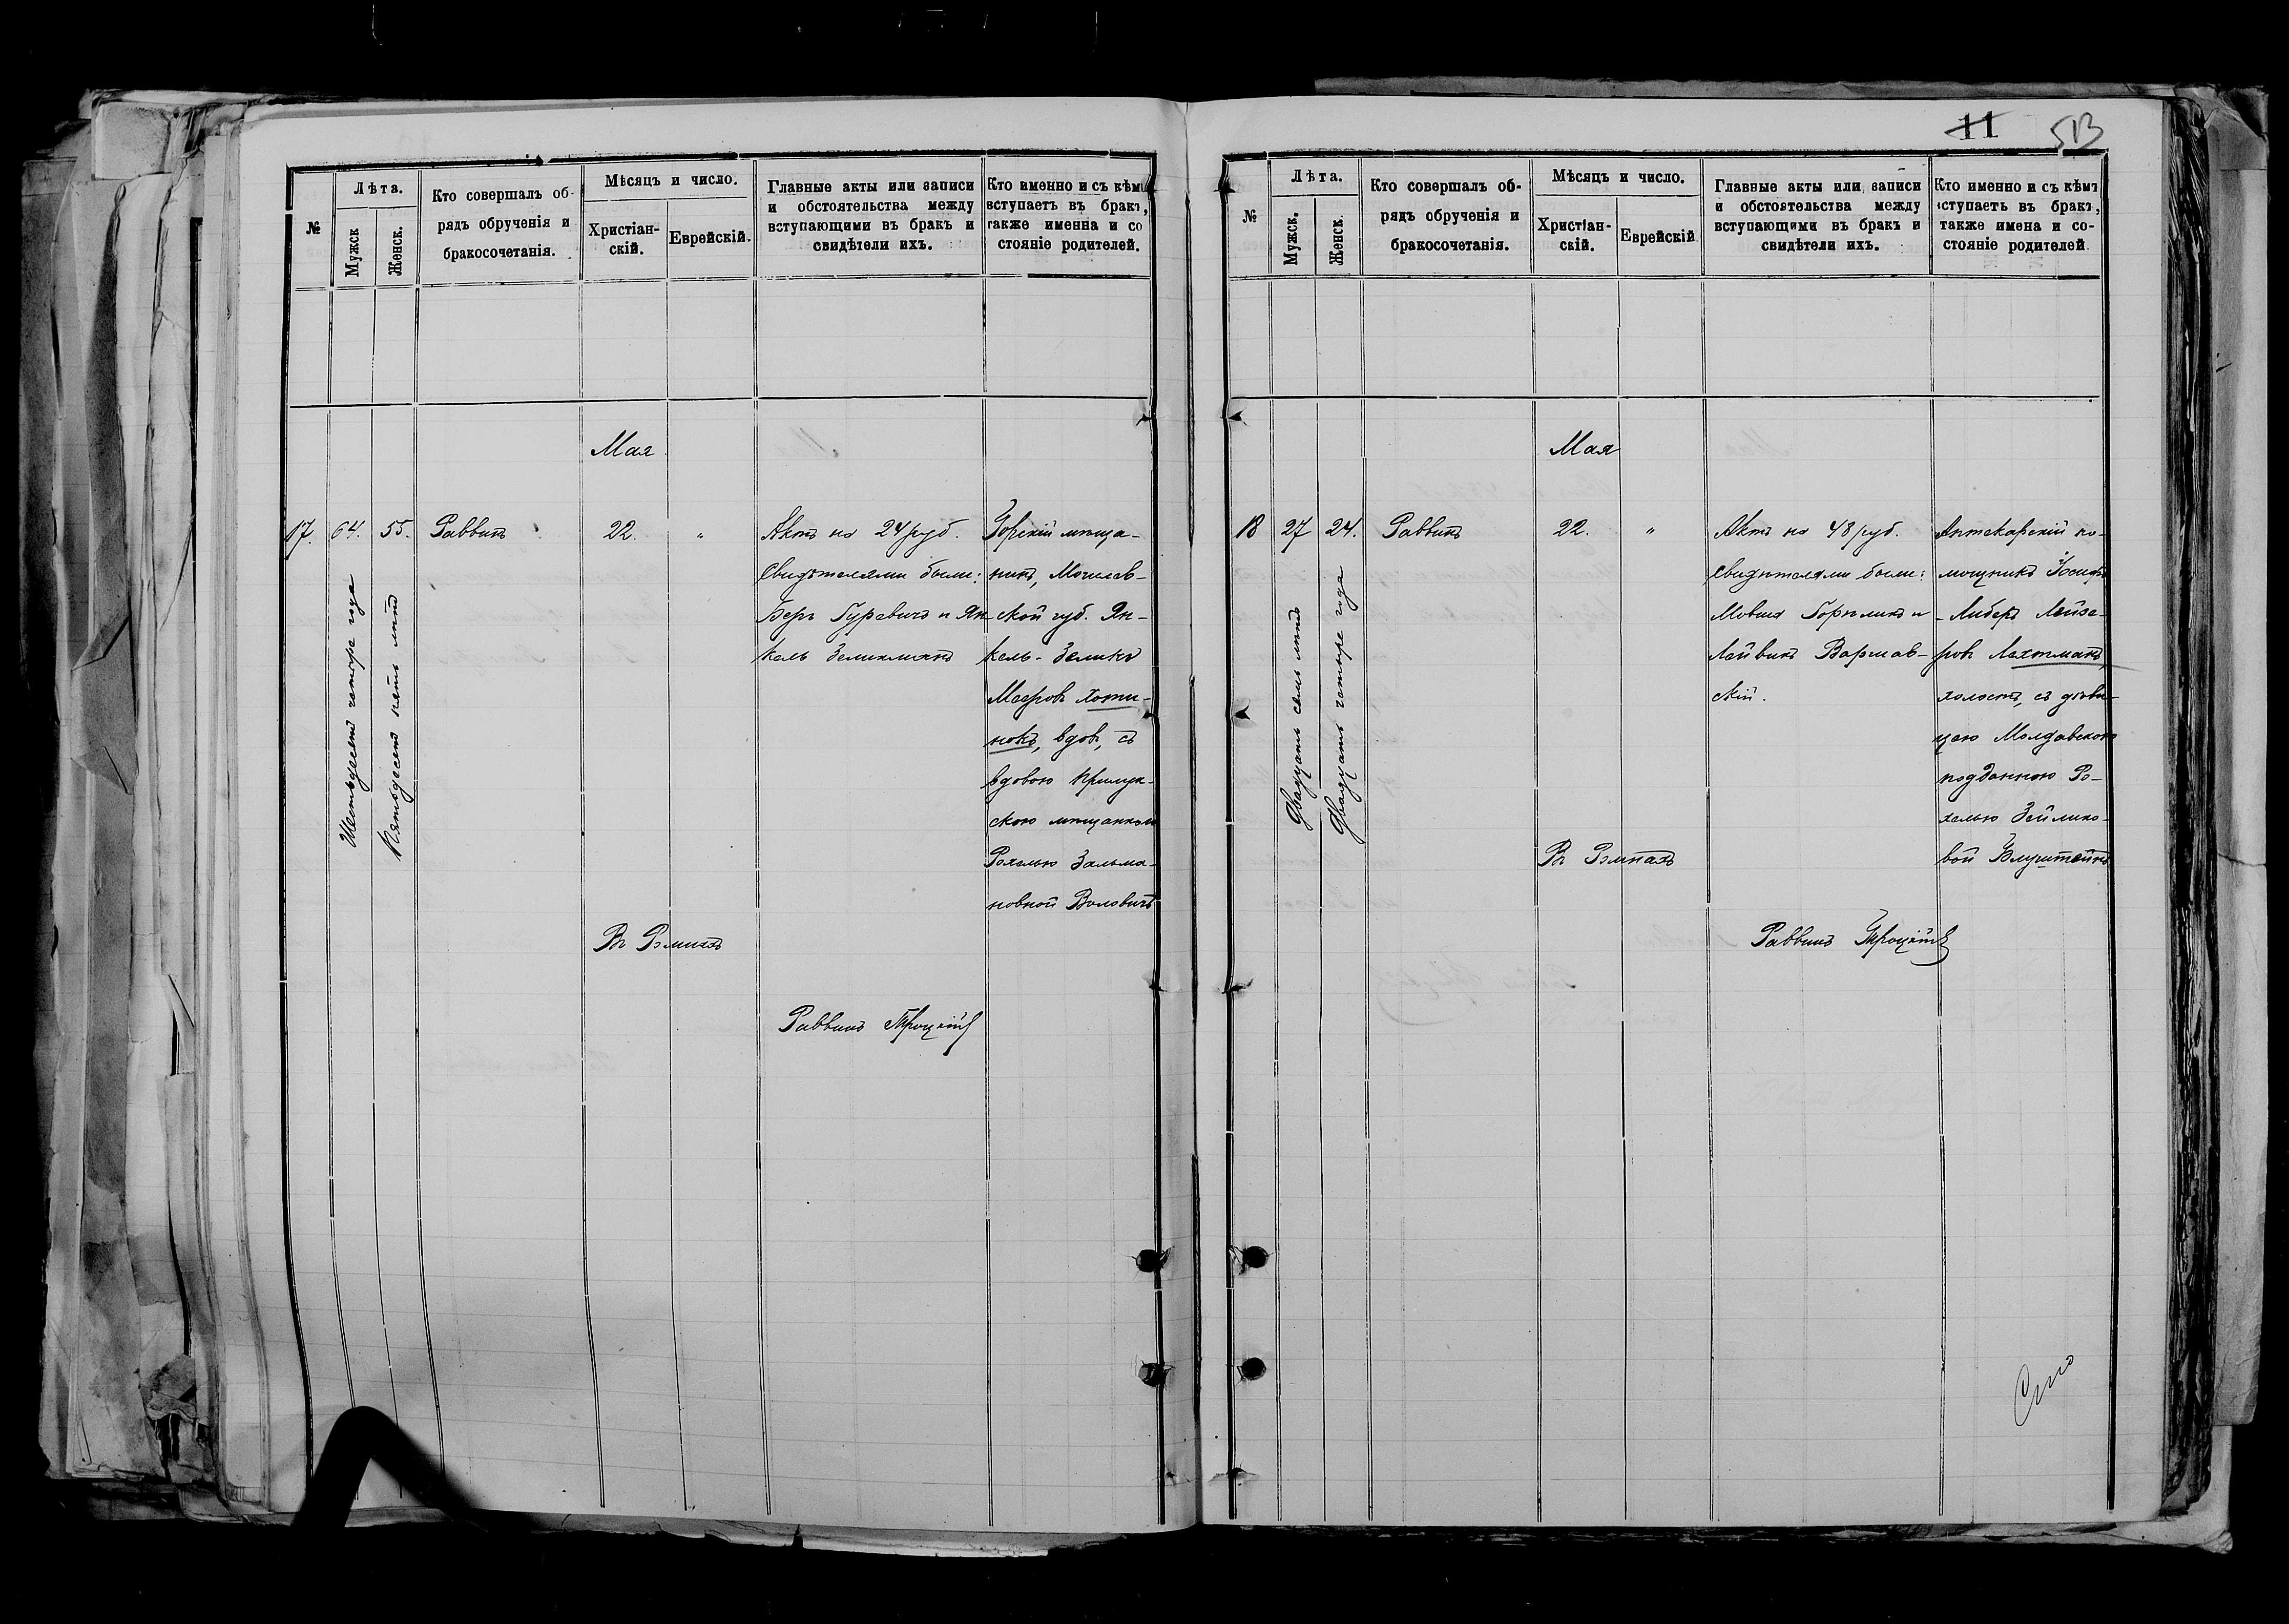 №
Лѣта.
Мужск
Женск.
Кто совершалъ об-
рядъ обрученія и
бракосочетанія.
Мѣсяцъ и число.
Христіан-
скій.
Еврейскій.
Главные акты или записи
и обстоятельства между
вступающими въ бракъ и
свидѣтели ихъ.
Кто именно и съ кѣмъ
вступаетъ въ бракъ,
также имениа и со
стояніе родителей.
Мая
17.
64.
Шестьдесят четыре года
55.
Пятьдесят пять лѣтъ
Раввинъ
22.
"
Актъ на 24 руб.
Свидѣтелями были:
Беръ Гуревичъ и Ян-
кель Зеликманъ
Горскій мѣща-
нинъ, Могилев-
ской губ. Ян-
кель-Зеликъ
Мееровъ Хоти-
нокъ, вдов, съ
вдовою Прилук-
скою мѣщанкою
Рохелью Зальма-
новной Воловичъ
Въ Ромнахъ
Раввинъ Троцкій
11
513
№
Лѣта.
Мужск.
Женск.
Кто совершалъ об-
рядъ обрученія и
бракосочетанія.
Мѣсяцъ и число.
Христіан-
скій.
Еврейскій
Главные акты или записи
и обстоятельства между
вступающими въ бракъ и
свидѣтели ихъ.
Кто именно и съ кѣмъ
вступаетъ въ бракъ,
также имена и со-
стояніе родителей
Мая
18
27
Двадцать семь лѣтъ
24.
Двадцать четыре года
Раввинъ
22.
"
Актъ на 48 руб.
Свидѣтелями были:
Мовша Горѣликъ и
Лейвикъ Варшав-
скій.
Аптекарскій по-
мощникъ Іосифъ
-Либеръ Лейзе-
ровъ Лахтманъ,
холостъ, съ дѣви-
цею Молдавскою
подданною Ро-
хелью Зейлико-
вой Блуштейнъ
Въ Ромнахъ
Раввинъ Троцкій